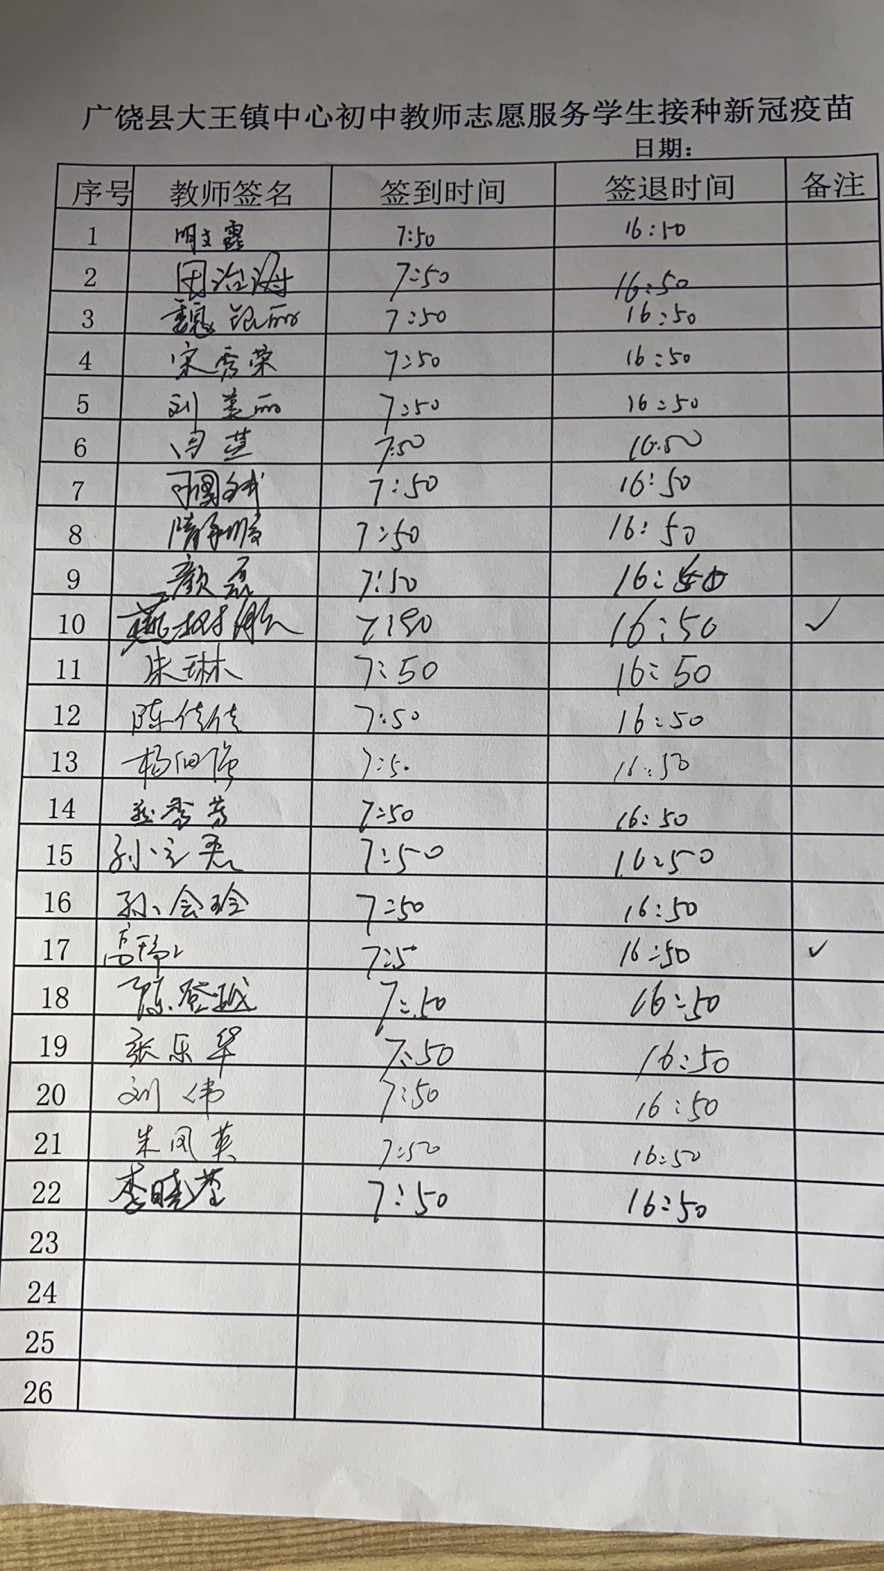 广饶县大王镇中心初中教师志愿服务学生接种新冠疫苗
日期：
序号 教师签名 签到时间 签退时间 备注
1 明文霞 7:50 16:50
2 7:50 16:50
3 魏银丽 7:50 16:50
4 宋秀荣 7:50 16:50
5 刘美丽 7:50 16:50
6 7:50 16:50
7 7:50 16:50
8 7:50 16:50
9 颜磊 7:50 16:50
10 7:50 16:50 ✓
11 朱琳 7:50 16:50
12 陈佳佳 7:50 16:50
13 杨 7:50 16:50
14 秀芳 7:50 16:50
15 孙立君 7:50 16:50
16 孙会玲 7:50 16:50
17 高 7:5 16:50 ✓
18 陈登 7:50 16:50
19 张乐华 7:50 16:50
20 刘伟 7:50 16:50
21 朱凤英 7:50 16:50
22 李晓莹 7:50 16:50
23
24
25
26